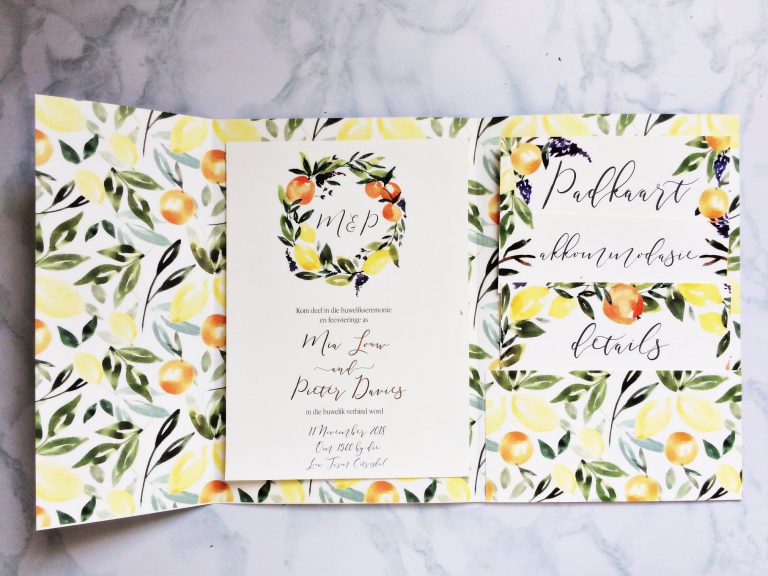 M&P
Kom deel in die huwelikseremonie
en feesvieringe as
Mia Louw
and
Pieter Davies
in die huwelik verbind word
17 November 2018
Om 1500 by die
Padkaart
akkommodasie
details